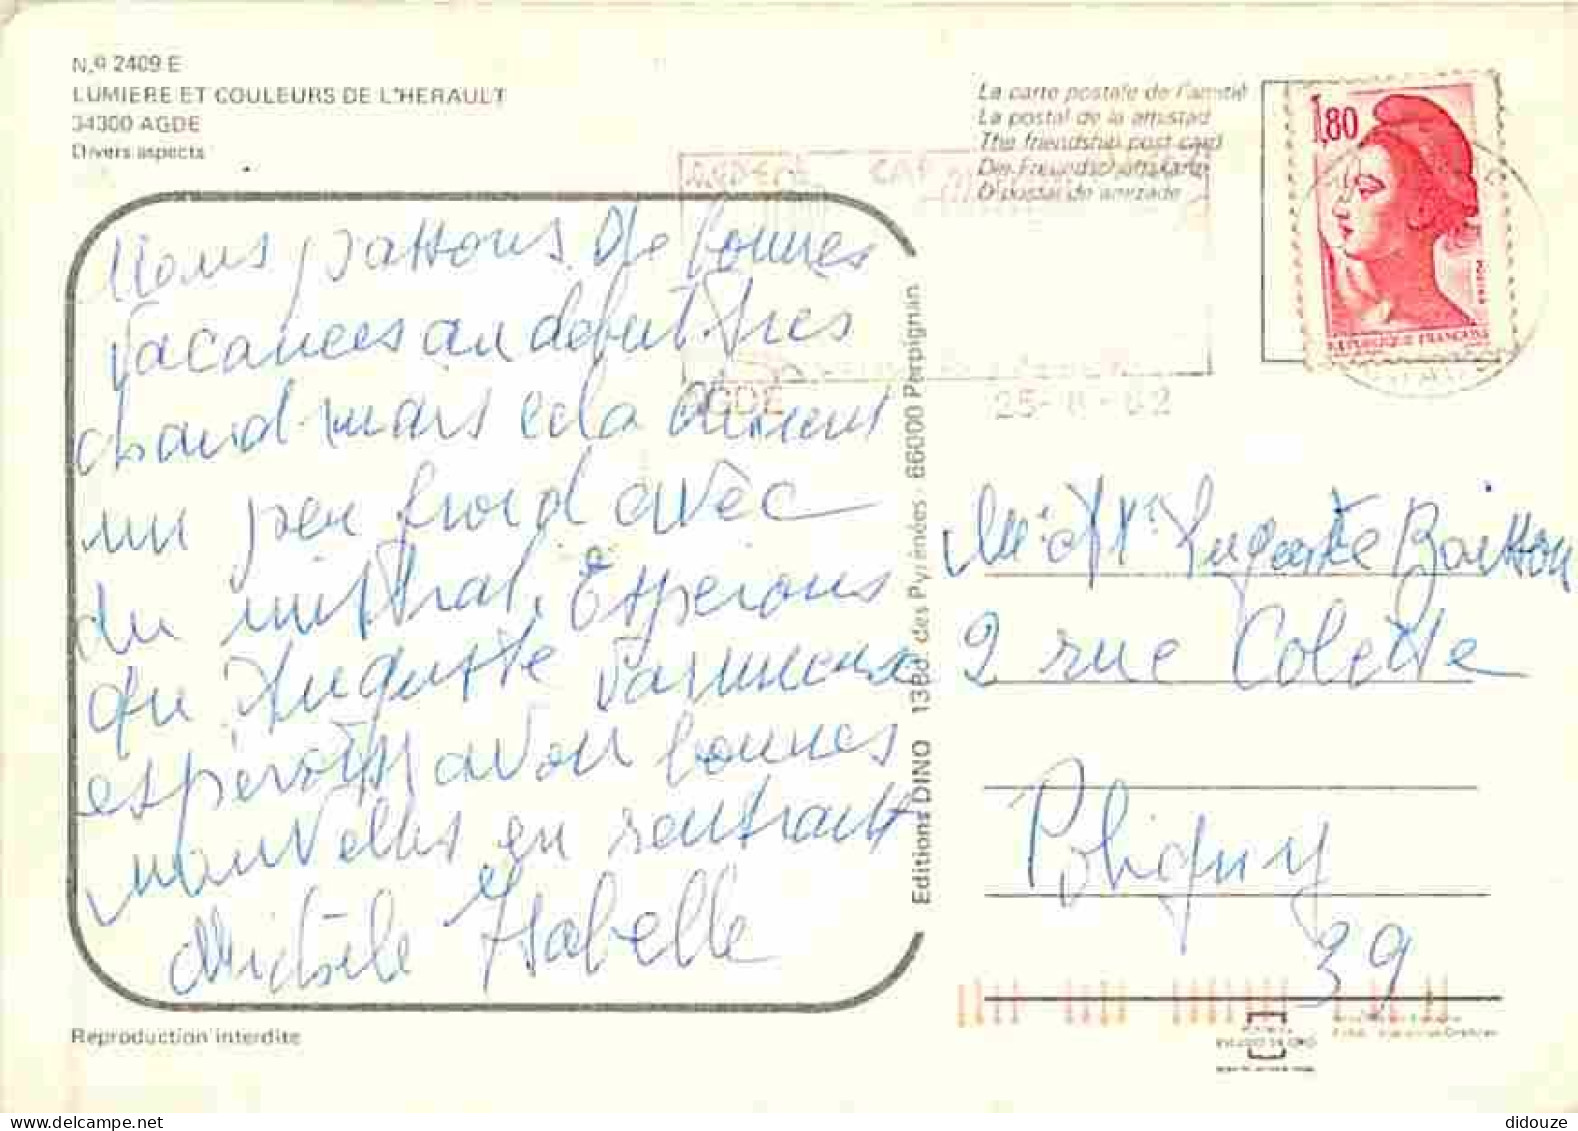 N.º 2409 E
LUMIERE ET COULEURS DE L'HERAULT
34300 AGDE
Divers aspects
La carte postale de l'amitié
La postal de la amistad
The friendship post card
Die Freundschaftskarte
O postal de amizade
1,80
REPUBLIQUE FRANÇAISE
CAP
AGDE
25-8-82
Nous passons de bonnes
vacances au debut tres
chaud mais cela devient
un peu froid avec
du mistral. Esperons
que Auguste va mieux
espérons avoir bonnes
nouvelles en rentrant
Michèle Isabelle
Editions DINO 13Bd. des Pyrénées - 66000 Perpignan
Me et Mr Auguste
2 rue Colette
Poligny
39
Reproduction interdite
didouze